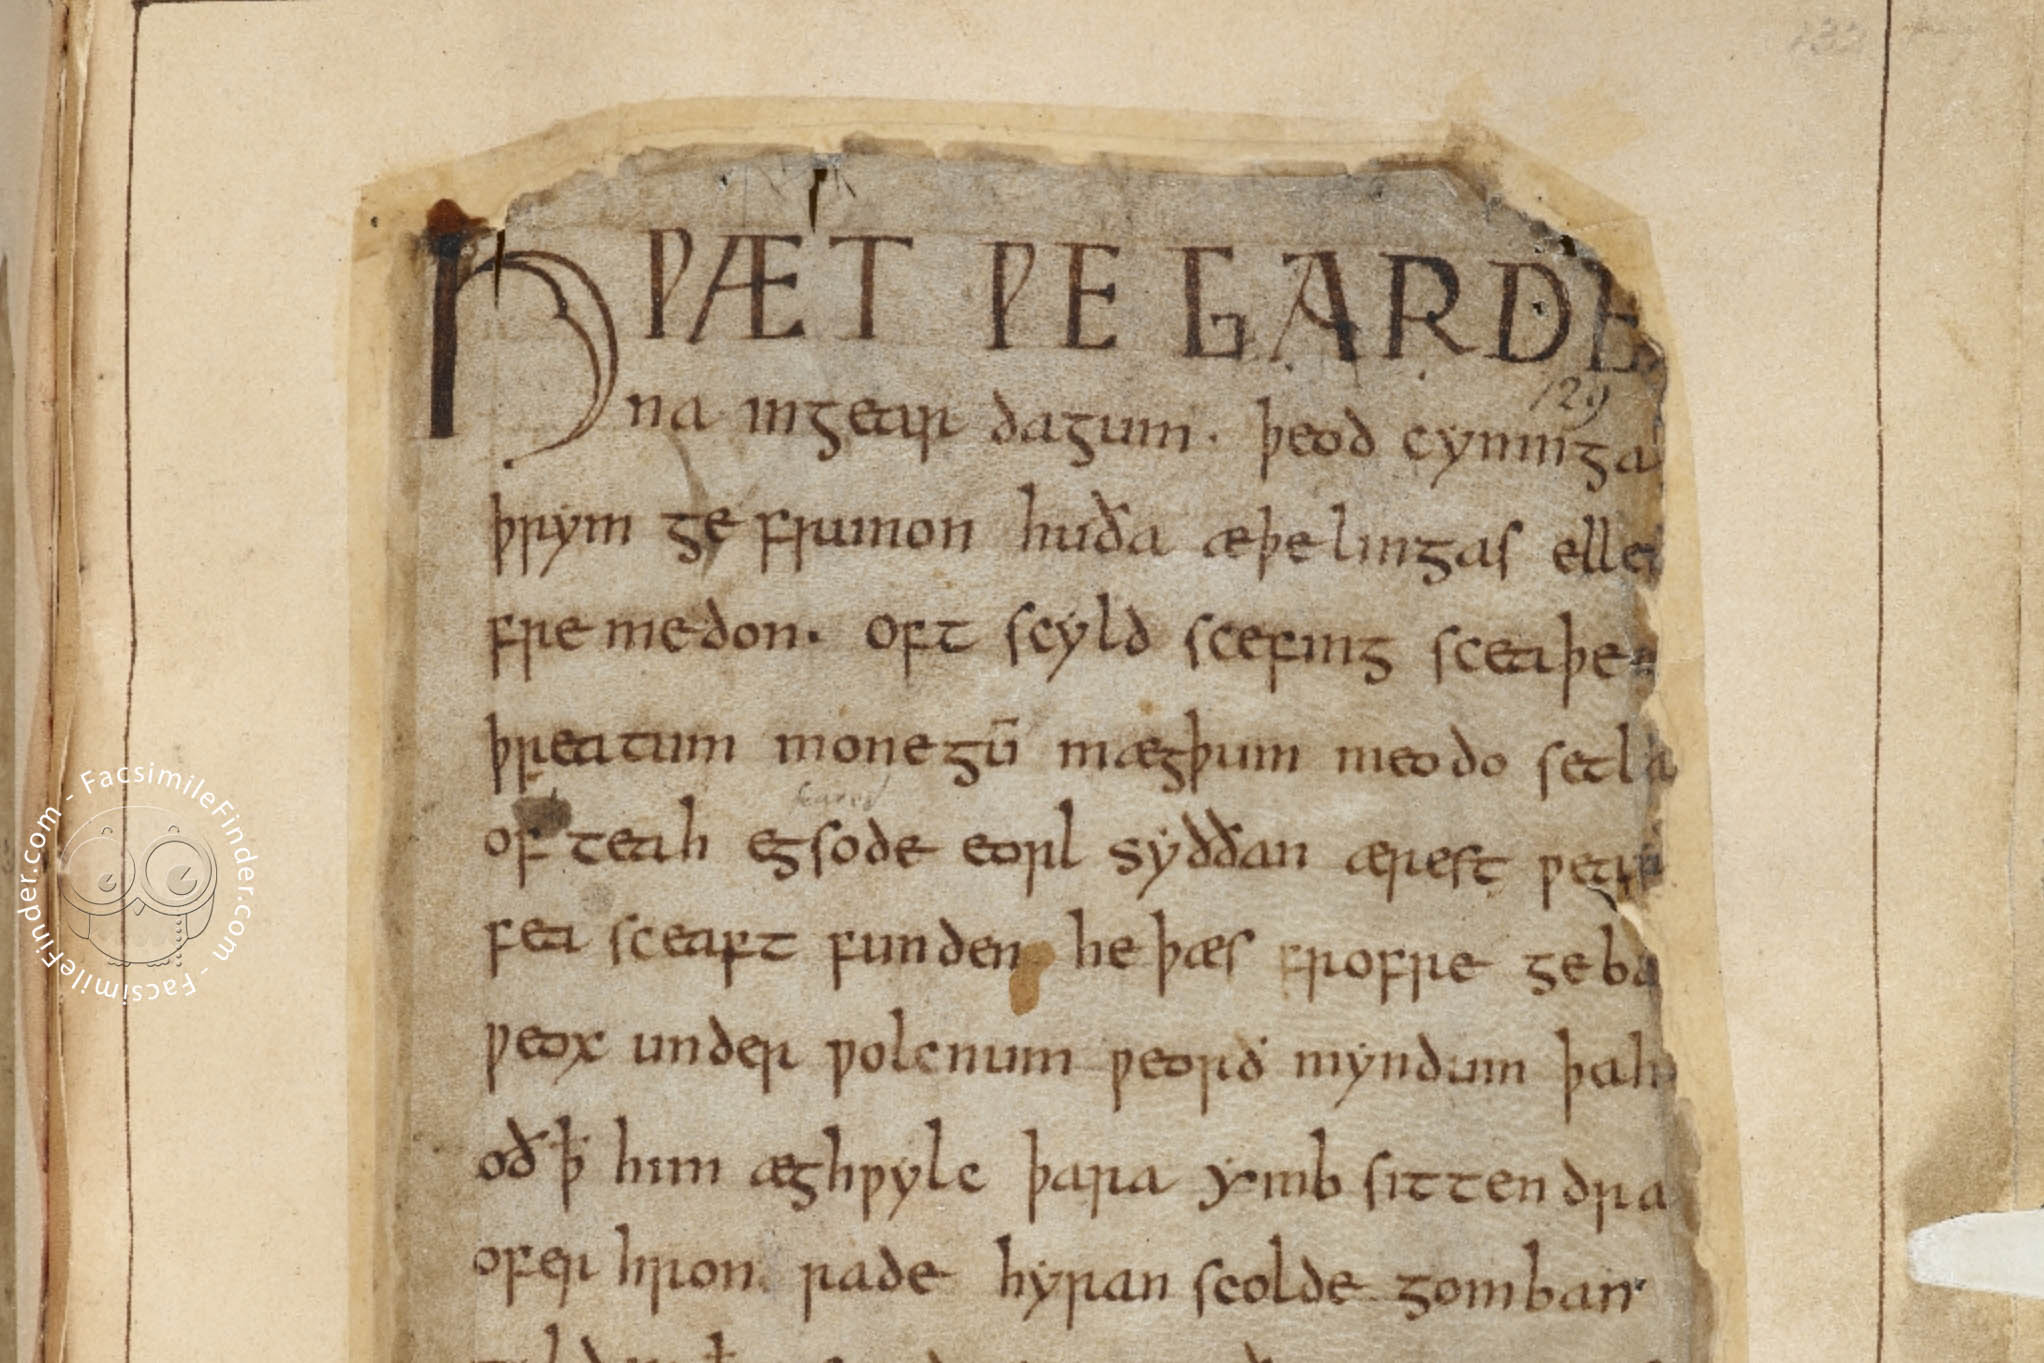 HǷÆT ǷE GARDE
na ingear dagum. þeod cyninga
þrym ge frunon huða æþelingas ellen
fremedon. oft scyld scefing sceaþen
þreatum monegū mægþum meodo setla
of teah egsode eorl syððan ærest ƿear
fea sceaft funden he þæs frofre geba
ƿeox under ƿolcnum ƿeorð myndum þah
oð ꝥ him æghƿylc þara ymb sittendra
ofer hron rade hyran scolde gomban
129
FacsimileFinder.com - FacsimileFinder.com - FacsimileFinder.com